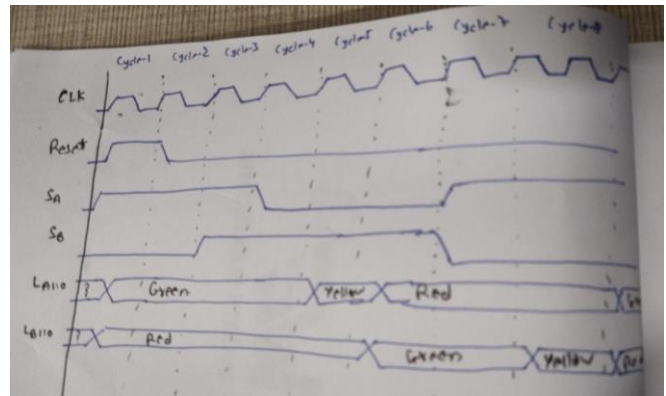 Cycle-1 Cycle-2 Cycle-3 Cycle-4 Cycle-5 Cycle-6 Cycle-7 Cycle-8
CLK
Reset
SA
SB
LA1:0 ? Green Yellow Red
LB1:0 ? Red Green Yellow Red